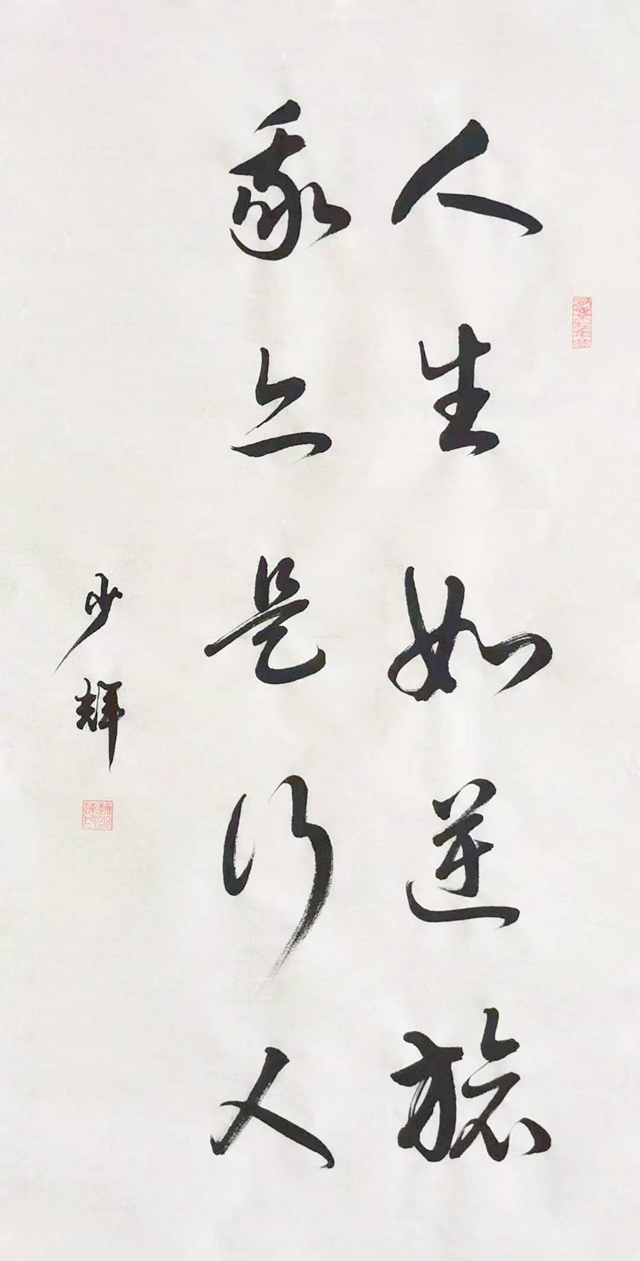 人生如逆旅
我亦是行人
少辉